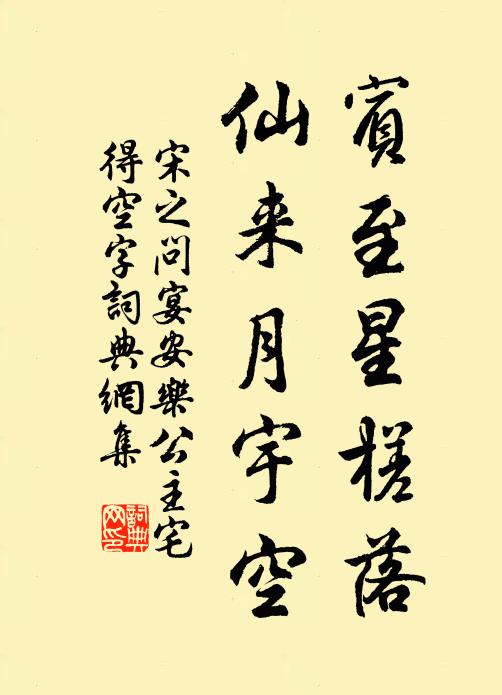 賓至星槎落
仙来月宇空
宋之问宴安樂公主宅
得空字詞典網集
詞典网印